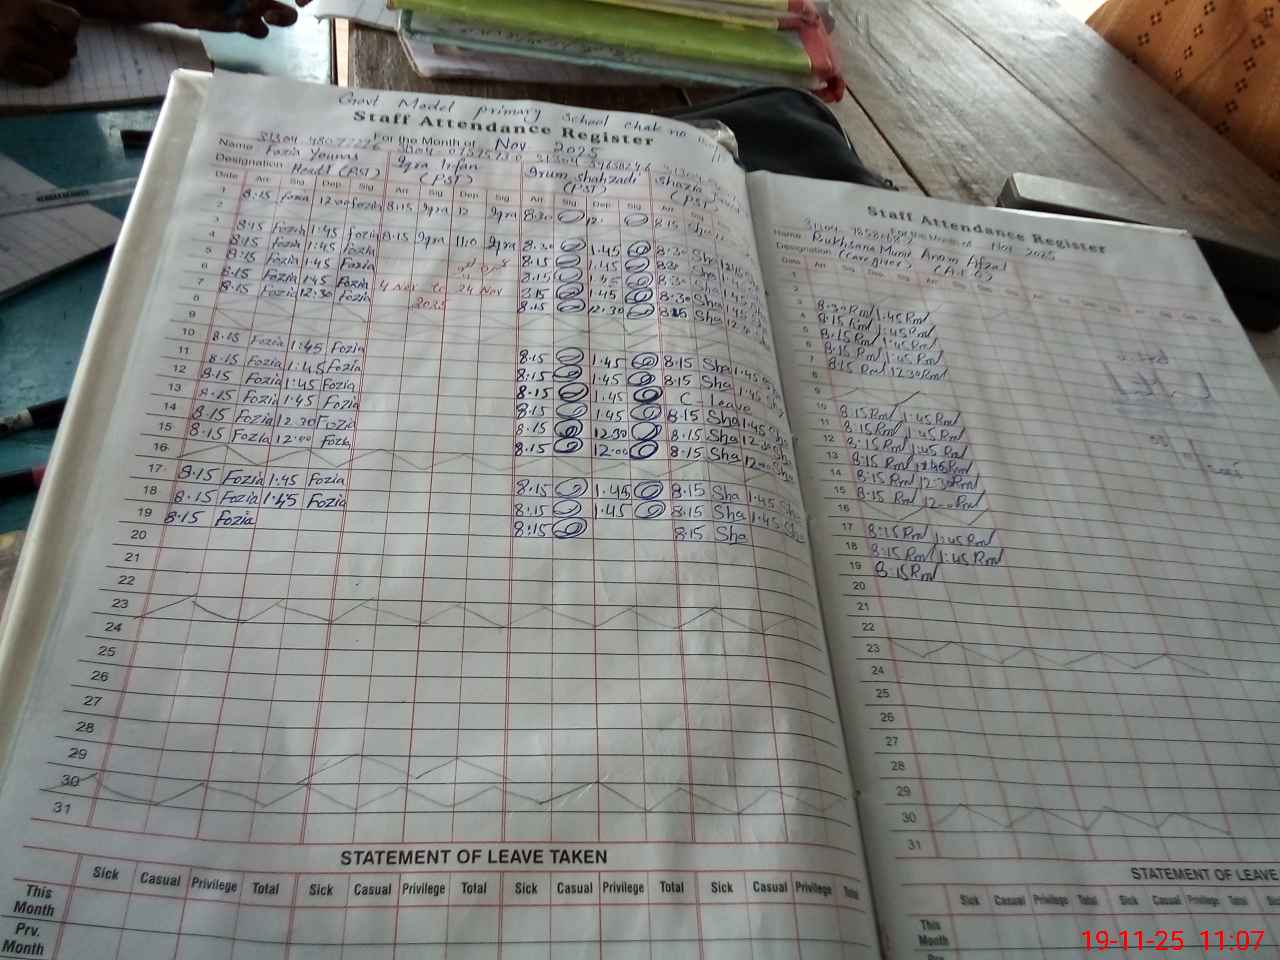 Govt Model primary School chak no
Staff Attendance Register
For the Month of Nov 2025
Name Fozia Younas Iqra Irfan Irum shahzadi Shazia
Designation Head (PST) (PST) (PST) (PST)
Date Arr Sig Dep Sig Arr Sig Dep Sig Arr Sig Dep Sig Arr Sig
1 8:15 Fozia 12:00 Fozia 8:15 Iqra 12 Iqra 8:30 12: 8:15
2
3 8:15 Fozia 1:45 Fozia 8:15 Iqra Iqra 8:30 1:45 8:30 Sha 1:45
4 8:15 Fozia 1:45 Fozia 8:15 1:45 Sha
5 8:15 Fozia 1:45 Fozia 8:15 1:45 8:30 Sha
6 8:15 Fozia 1:45 Fozia 4 Nov to 24 Nov 8:15 1:45 8:30 Sha 1:45 Sha
7 8:15 Fozia 12:30 Fozia 2025 8:15 12:30 8:15 Sha
8
9
10 8:15 Fozia 1:45 Fozia 8:15 1:45 8:15 Sha 1:45 Sha
11 8:15 Fozia 1:45 Fozia 8:15 1:45 8:15 Sha 1:45 Sha
12 8:15 Fozia 1:45 Fozia 8:15 1:45 C Leave
13 8:15 Fozia 1:45 Fozia 8:15 1:45 8:15 Sha 1:45 Sha
14 8:15 Fozia 12:30 Fozia 8:15 12:30 8:15 Sha 12:30 Sha
15 8:15 Fozia 12:00 Fozia 8:15 12:00 8:15 Sha 12:00 Sha
16
17 8:15 Fozia 1:45 Fozia 8:15 1:45 8:15 Sha 1:45 Sha
18 8:15 Fozia 1:45 Fozia 8:15 1:45 8:15 Sha 1:45 Sha
19 8:15 Fozia 8:15 8:15 Sha
20
21
22
23
24
25
26
27
28
29
30
31
STATEMENT OF LEAVE TAKEN
Sick Casual Privilege Total Sick Casual Privilege Total Sick Casual Privilege Total Sick Casual Privilege Total
This Month
Prv. Month
Staff Attendance Register
For the Month of Nov 2025
Name Rukhsana Munir Anam Afzal
Designation (Care giver)
Date Arr Sig Dep Sig Arr Sig
1
2
3 8:30 Rm 1:45 Rm
4 8:15 Rm 1:45 Rm
5 8:15 Rm 1:45 Rm
6 8:15 Rm 1:45 Rm
7 8:15 Rm 12:30 Rm
8
9
10 8:15 Rm 1:45 Rm
11 8:15 Rm 1:45 Rm
12 8:15 Rm 1:45 Rm
13 8:15 Rm 1:45 Rm
14 8:15 Rm 12:30 Rm
15 8:15 Rm 12:00 Rm
16
17 8:15 Rm 1:45 Rm
18 8:15 Rm 1:45 Rm
19 8:15 Rm
20
21
22
23
24
25
26
27
28
29
30
31
STATEMENT OF LEAVE
Sick Casual Privilege Total Sick Casual Privilege Total
This Month
19-11-25 11:07